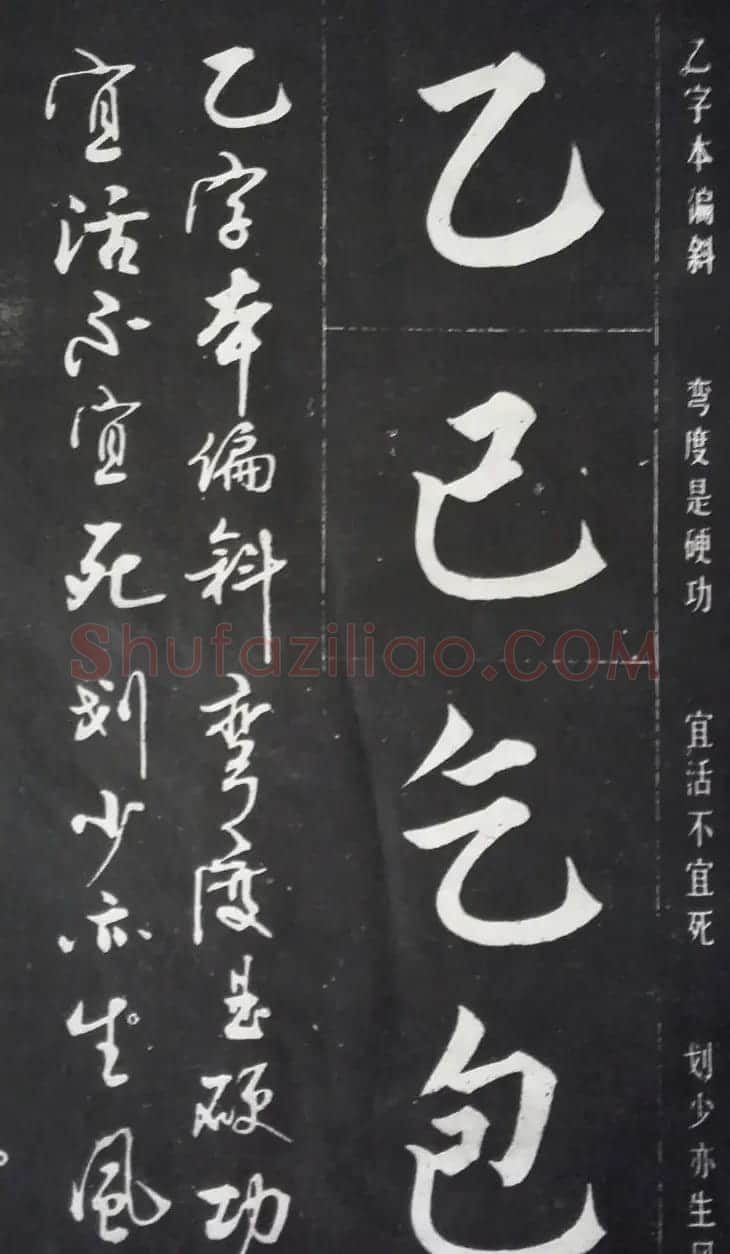 乙字本偏斜 弯度是硬功 宜活不宜死 划少亦生风
乙
已
乞
包
乙字本偏斜弯度是硬功
宜活不宜死划少亦生风
Shufaziliao.COM